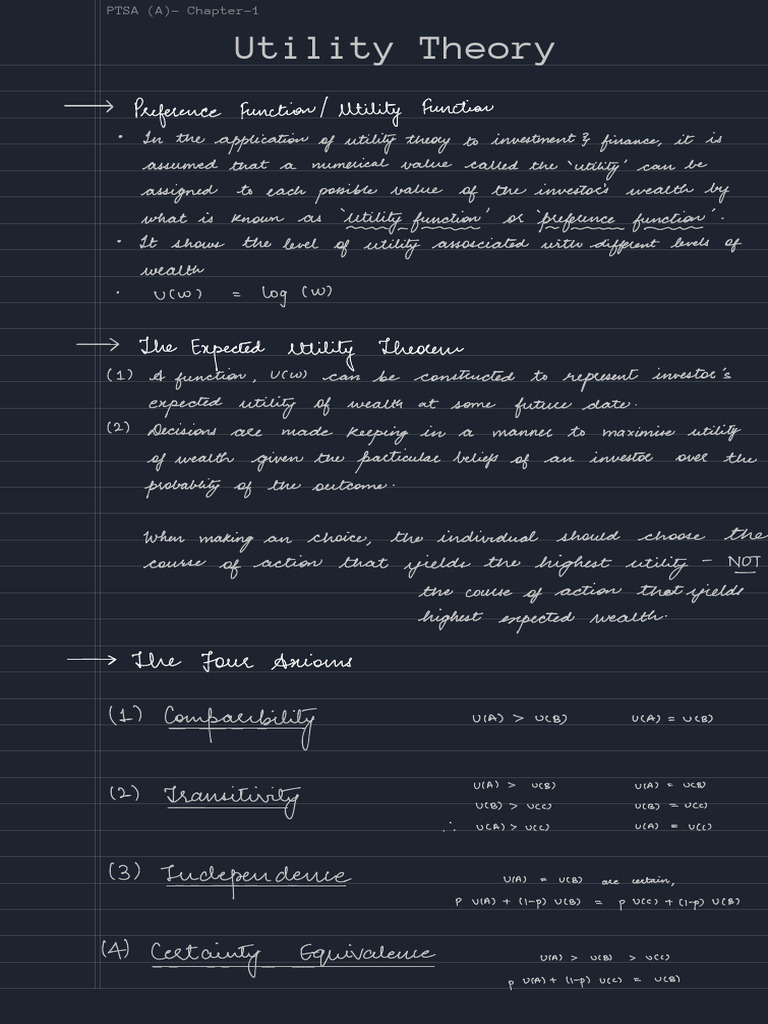 PTSA (A)- Chapter-1
Utility Theory
→ Preference Function/ Utility Function
• In the application of utility theory to investment & finance, it is
assumed that a numerical value called the 'utility' can be
assigned to each possible value of the investor's wealth by
what is known as 'utility function' or 'preference function'.
• It shows the level of utility assosciated with different levels of
wealth
• U(W) = log (W)
→ The Expected Utility Theorem
(1) A function, U(W) can be constructed to represent investor's
expected utility of wealth at some future date.
(2) Decisions are made keeping in a manner to maximise utility
of wealth given the particular beliefs of an investor over the
probablity of the outcome.
When making an choice, the individual should choose the
course of action that yields the highest utility - NOT
the course of action that yields
highest expected wealth.
→ The Four Axioms
(1) Comparibility U(A) > U(B) U(A) = U(B)
U(A) > U(B) U(A) = U(B)
(2) Transitivity U(B) > U(C) U(B) = U(C)
∴ U(A) > U(C) U(A) = U(C)
(3) Independence U(A) = U(B) are certain,
p U(A) + (1-p) U(B) = p U(C) + (1-p) U(B)
(4) Certainty Equivalence U(A) > U(B) > U(C)
p U(A) + (1-p) U(C) = U(B)